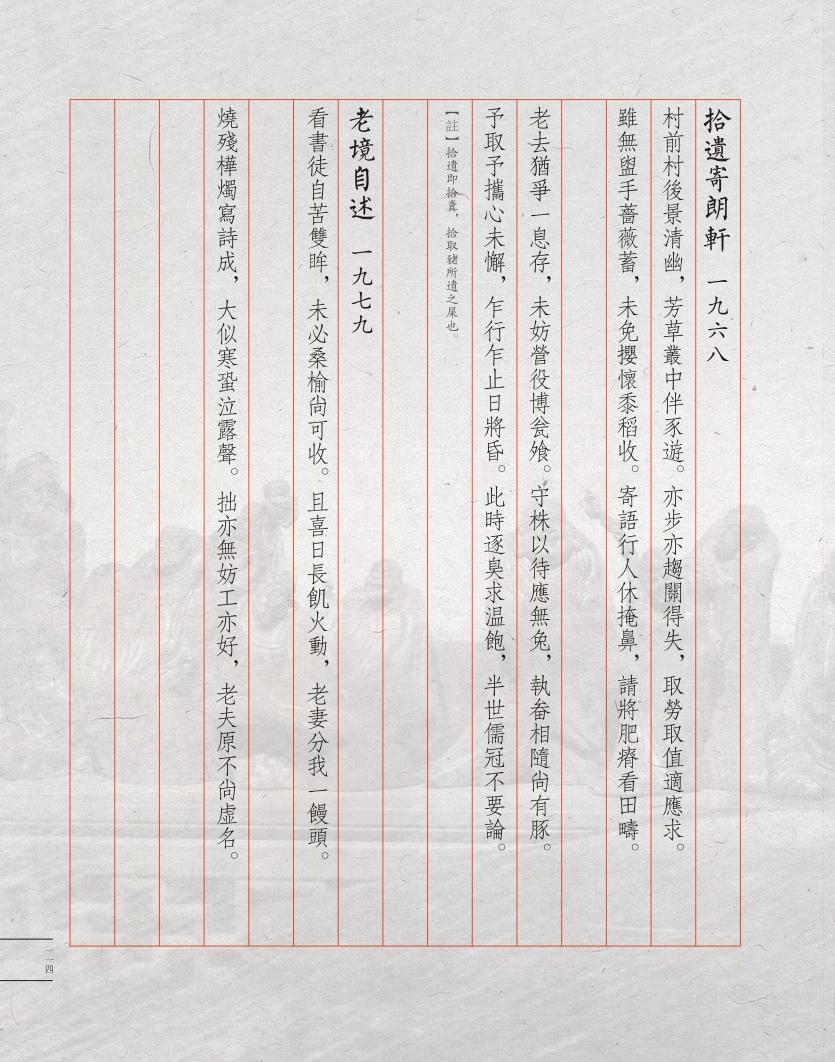 拾遺寄朗軒　一九六八
村前村後景清幽，芳草叢中伴豕遊。亦步亦趨關得失，取勞取值適應求。
雖無盥手薔薇蓄，未免攖懷黍稻收。寄語行人休掩鼻，請將肥瘠看田疇。
老去猶爭一息存，未妨營役博瓮飧。守株以待應無兔，執畚相隨尚有豚。
予取予攜心未懈，乍行乍止日將昏。此時逐臭求溫飽，半世儒冠不要論。
【註】拾遺即拾糞，拾取豬所遺之屎也。
老境自述　一九七九
看書徒自苦雙眸，未必桑榆尚可收。且喜日長飢火動，老妻分我一饅頭。
燒殘樺燭寫詩成，大似寒蛩泣露聲。拙亦無妨工亦好，老夫原不尚虛名。
一一四